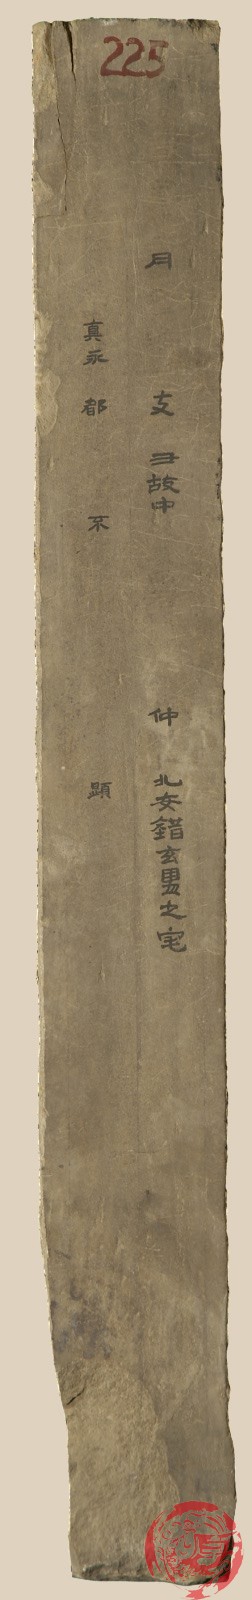 225
月支 彐故中 仲 北安錯玄男之宅
真永都 不 顕